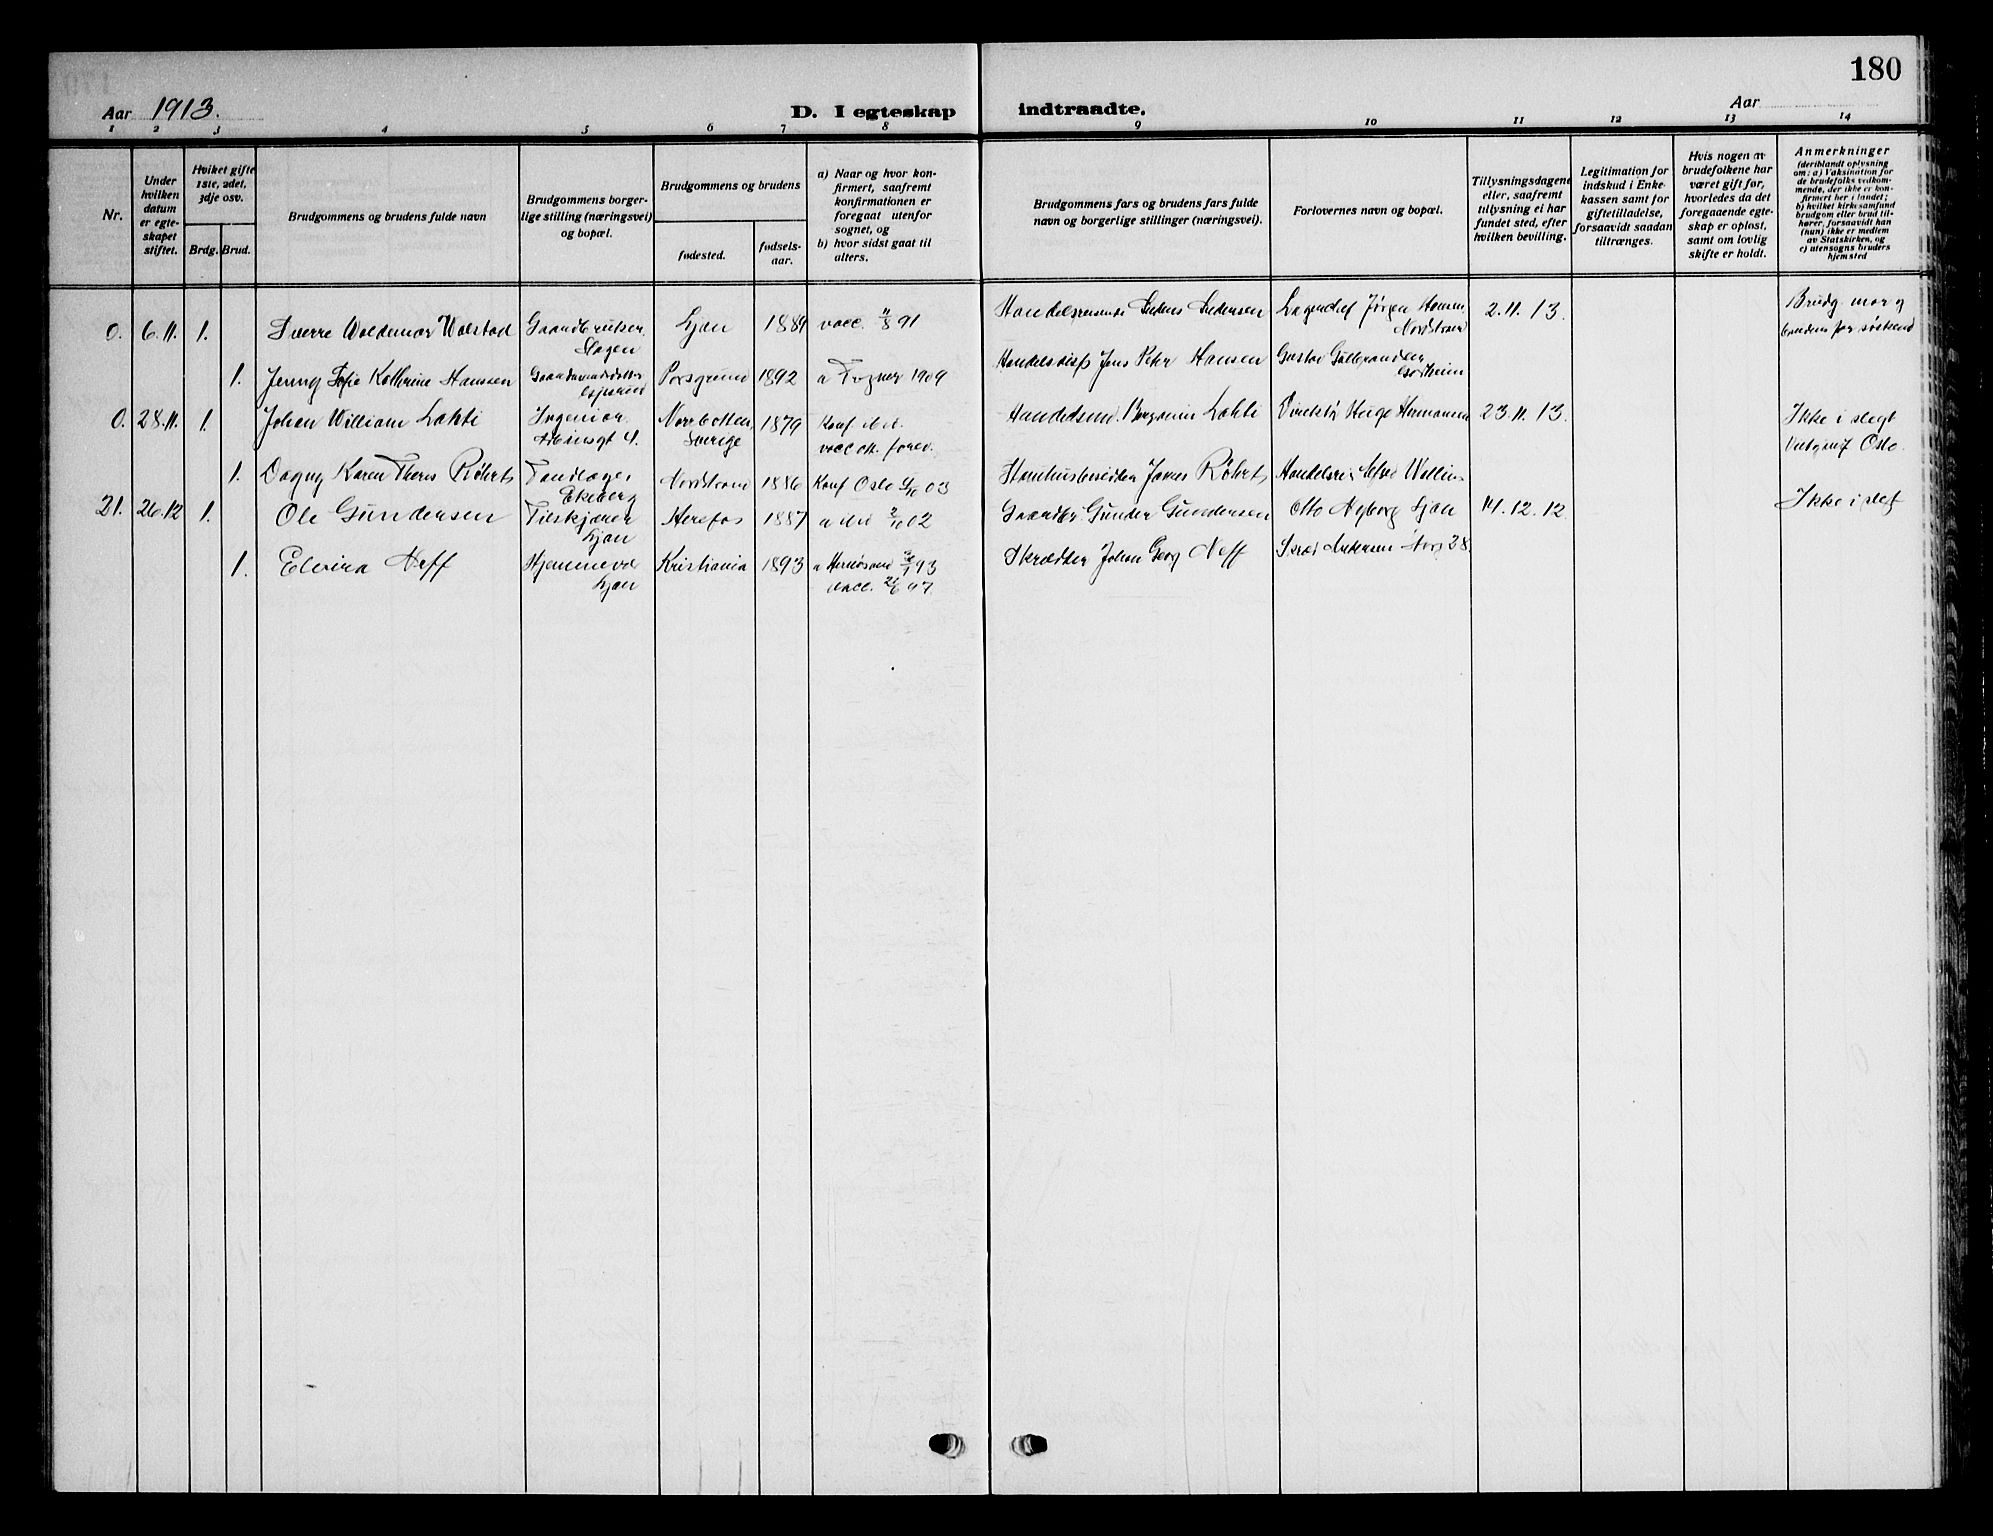 180
Aar 1913.
D. I egteskap indtraadte.
Aar
1 2 3 4 5 6 7 8 9 10 11 12 13 14
Nr.
Under
hvilken
datum
er egte-
skapet
stiftet.
Hvilket gifte
1ste, 2det,
3dje osv.
Brdg. Brud.
Brudgommens og brudens fulde navn
Brudgommens borger-
lige stilling (næringsvei)
og bopæl.
Brudgommens og brudens
fødested.
fødsels-
aar.
a) Naar og hvor kon-
firmert, saafremt
konfirmationen er
foregaat utenfor
sognet, og
b) hvor sidst gaat til
alters.
Brudgommens fars og brudens fars fulde
navn og borgerlige stillinger (næringsvei).
Forlovernes navn og bopæl.
Tillysningsdagene
eller, saafremt
tillysning ei har
fundet sted, efter
hvilken bevilling.
Legitimation for
indskud i Enke-
kassen samt for
giftetilladelse,
forsaavidt saadan
tiltrænges.
Hvis nogen av
brudefolkene har
været gift før,
hvorledes da det
foregaaende egte-
skap er opløst,
samt om lovlig
skifte er holdt.
Anmerkninger
(deriblandt oplysning
om: a) Vaksination for
de brudefolks vedkom-
mende, der ikke er kon-
firmert her i landet;
b) hvilket kirkesamfund
brudgom eller brud til-
hører, forsaavidt han
(hun) ikke er medlem
av Statskirken, og
c) utensogns bruders
hjemsted
0. 6.11. 1. Sverre Waldemar Walstad Ljan 1889 vacc. 91 Jørgen Hansen 2.11.13. Brudg. mor og
Nordstrand brudens far søskend
1. Jenny Sofie Kathrine Hanssen Porsgrund 1892 a Frogner 1909 Jens Petr Hansen Gustav Gulbrandsen
0. 28.11. 1. Johan William Lahti Ingeniør Norrbotten Sverige 1879 Benjamin Lahti Direktør Helge Hermansen 23.11.13. Ikke i slegt
Oslo.
1. Dagny Karen Røhrt Tandlæge Ekeberg Nordstrand 1886 Konf Oslo 03 Røhrt
21. 26.12 1. Ole Gundersen Ljan Herefos 1887 02 Gunder Gundersen Otto Nyborg Ljan 14.12.12. Ikke i slegt
1. Elvira Neff Hjemmevær Ljan Kristiania 1893 a 93 vacc. 97 Skrædder Johan Georg Neff Andersen 38